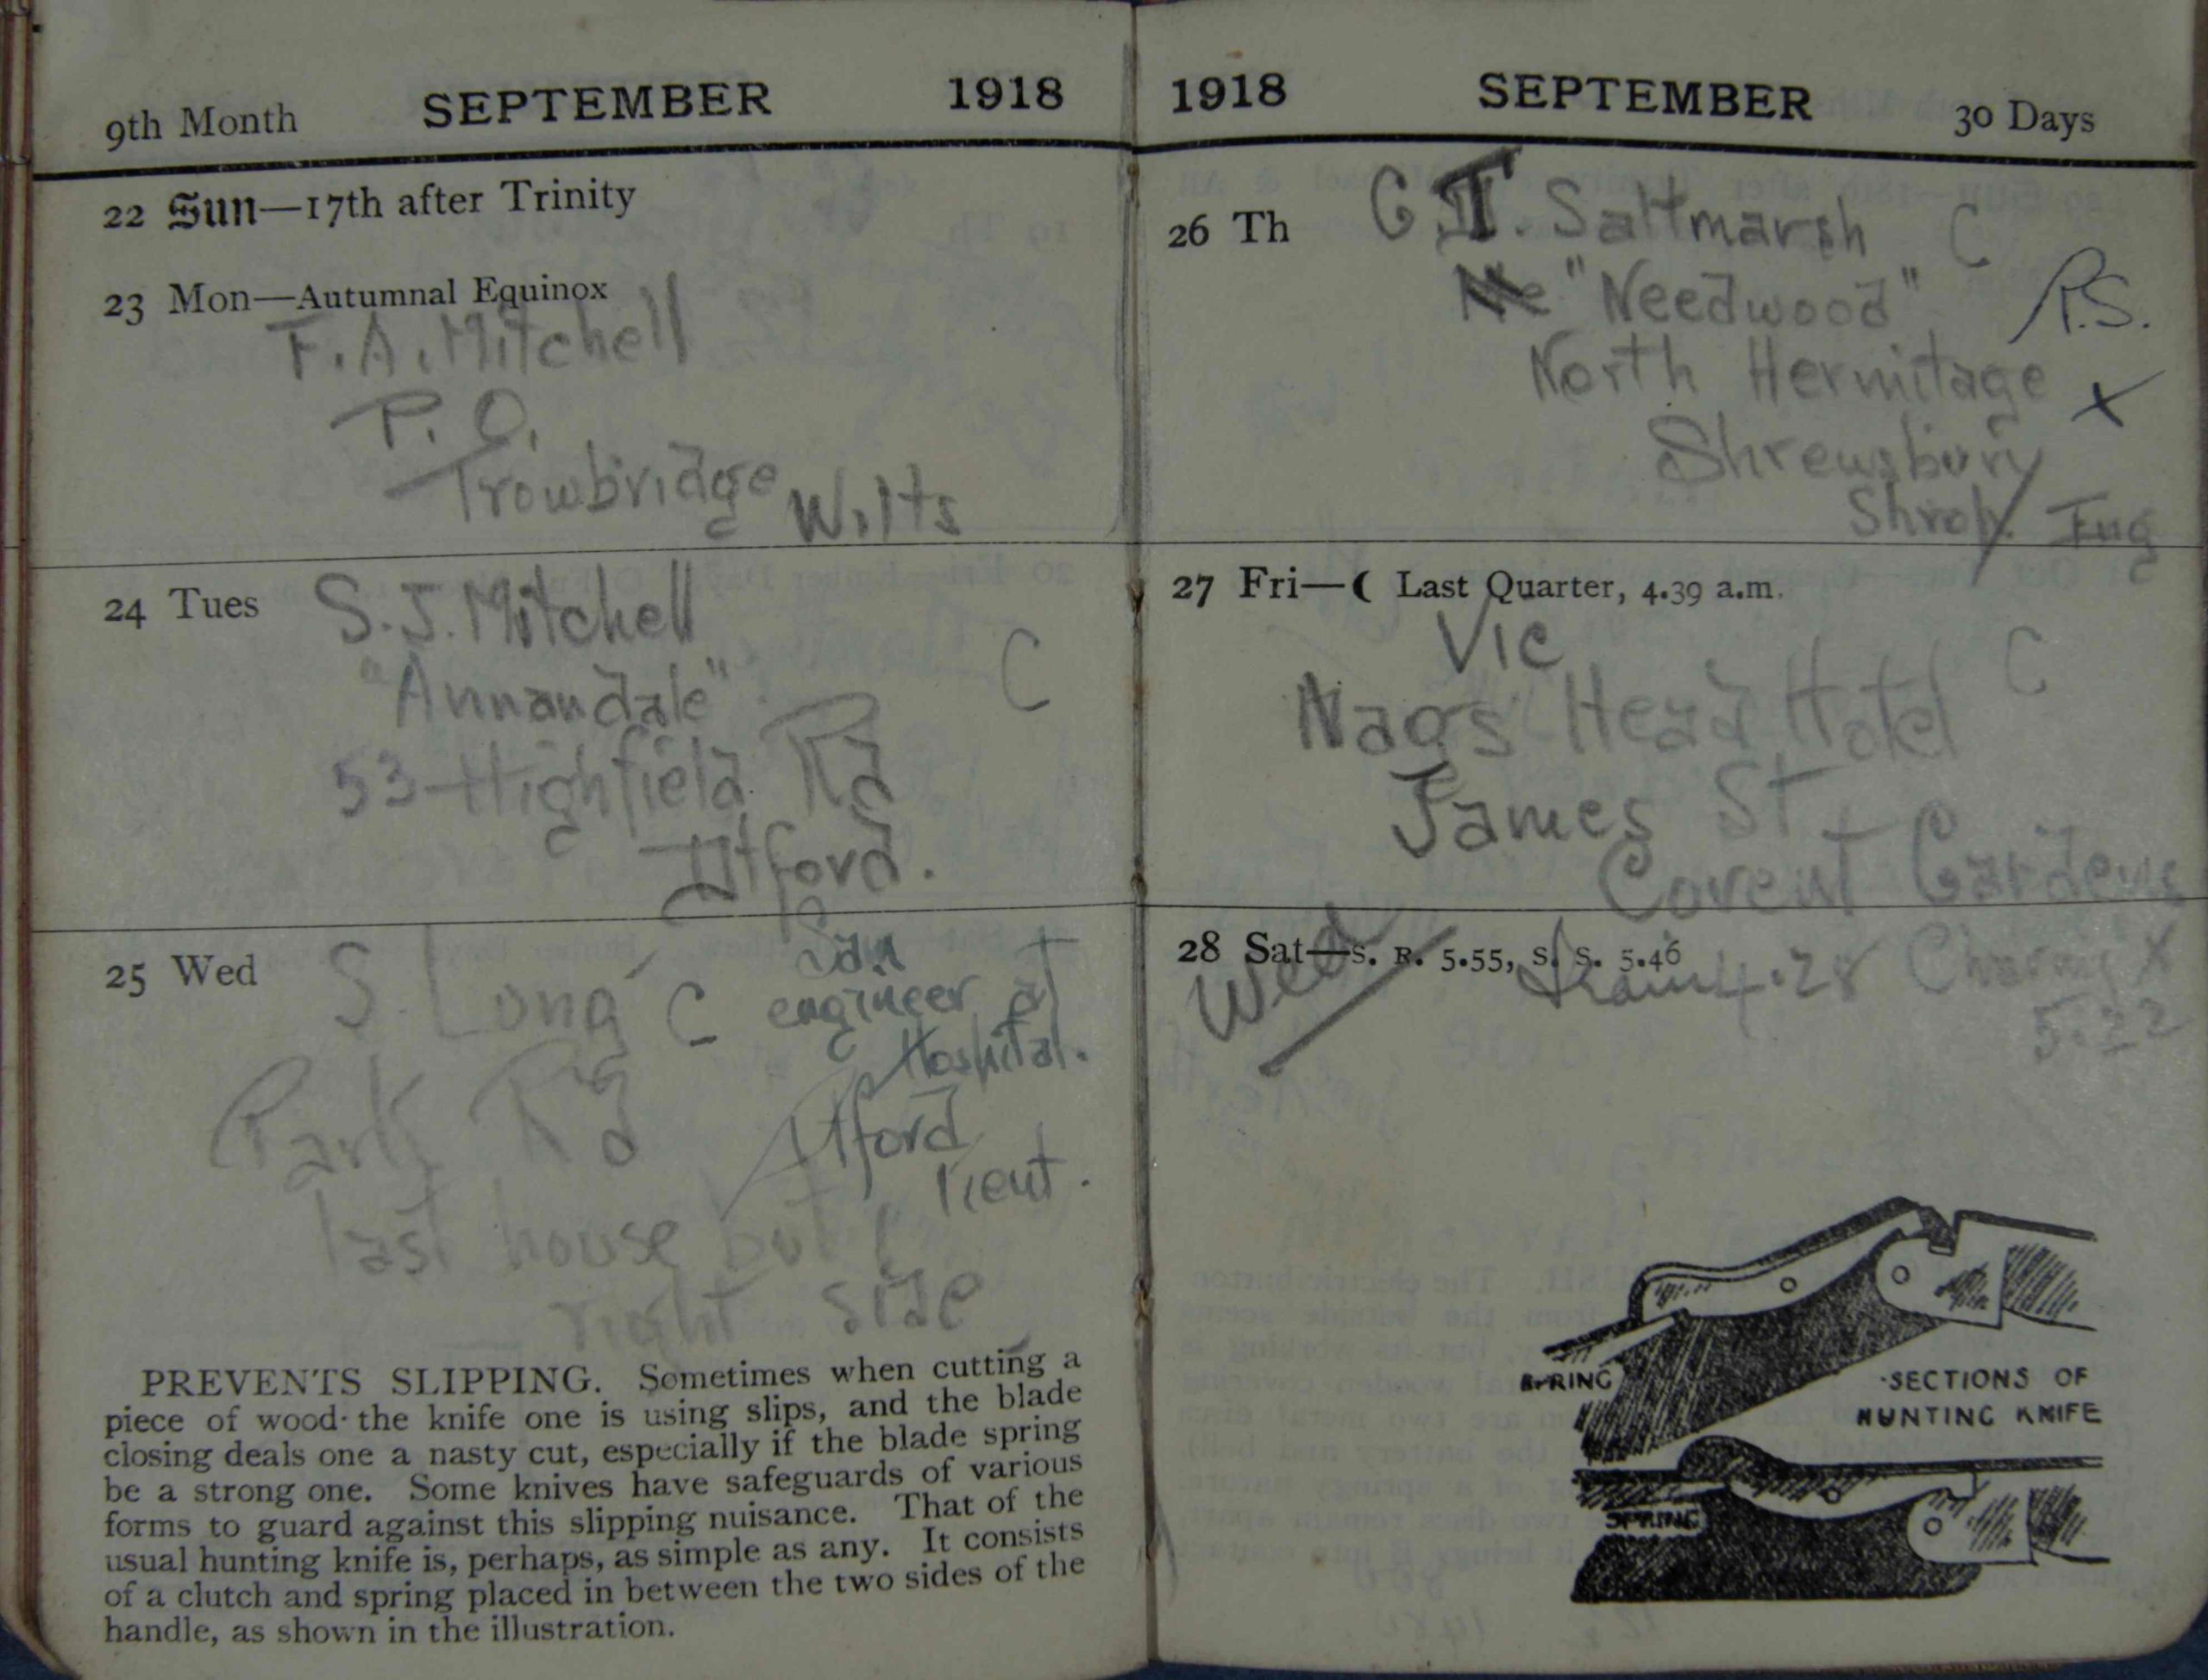 9th Month SEPTEMBER 1918
22 Sun—17th after Trinity
23 Mon—Autumnal Equinox
F. A. Mitchell
P. O.
Trowbridge Wilts
24 Tues
S. J. Mitchell
"Annandale" C
53 Highfield Rd
Dtford.
25 Wed
S. Long C
Park Rd
last house but 1
right side
San
engineer at
Hospital.
Dtford
Kent.
PREVENTS SLIPPING. Sometimes when cutting a
piece of wood the knife one is using slips, and the blade
closing deals one a nasty cut, especially if the blade spring
be a strong one. Some knives have safeguards of various
forms to guard against this slipping nuisance. That of the
usual hunting knife is, perhaps, as simple as any. It consists
of a clutch and spring placed in between the two sides of the
handle, as shown in the illustration.
1918 SEPTEMBER 30 Days
26 Th
C. T. Saltmarsh C
"Needwood" R.S.
North Hermitage X
Shrewsbury
Shrop. Eng
27 Fri—☾ Last Quarter, 4.39 a.m.
Vic
Nags Head Hotel C
James St
Covent Gardens
28 Sat—S. R. 5.55, S. S. 5.46
Wed Train 4.28 Charing X
5.22
SPRING
SECTIONS OF
HUNTING KNIFE
SPRING